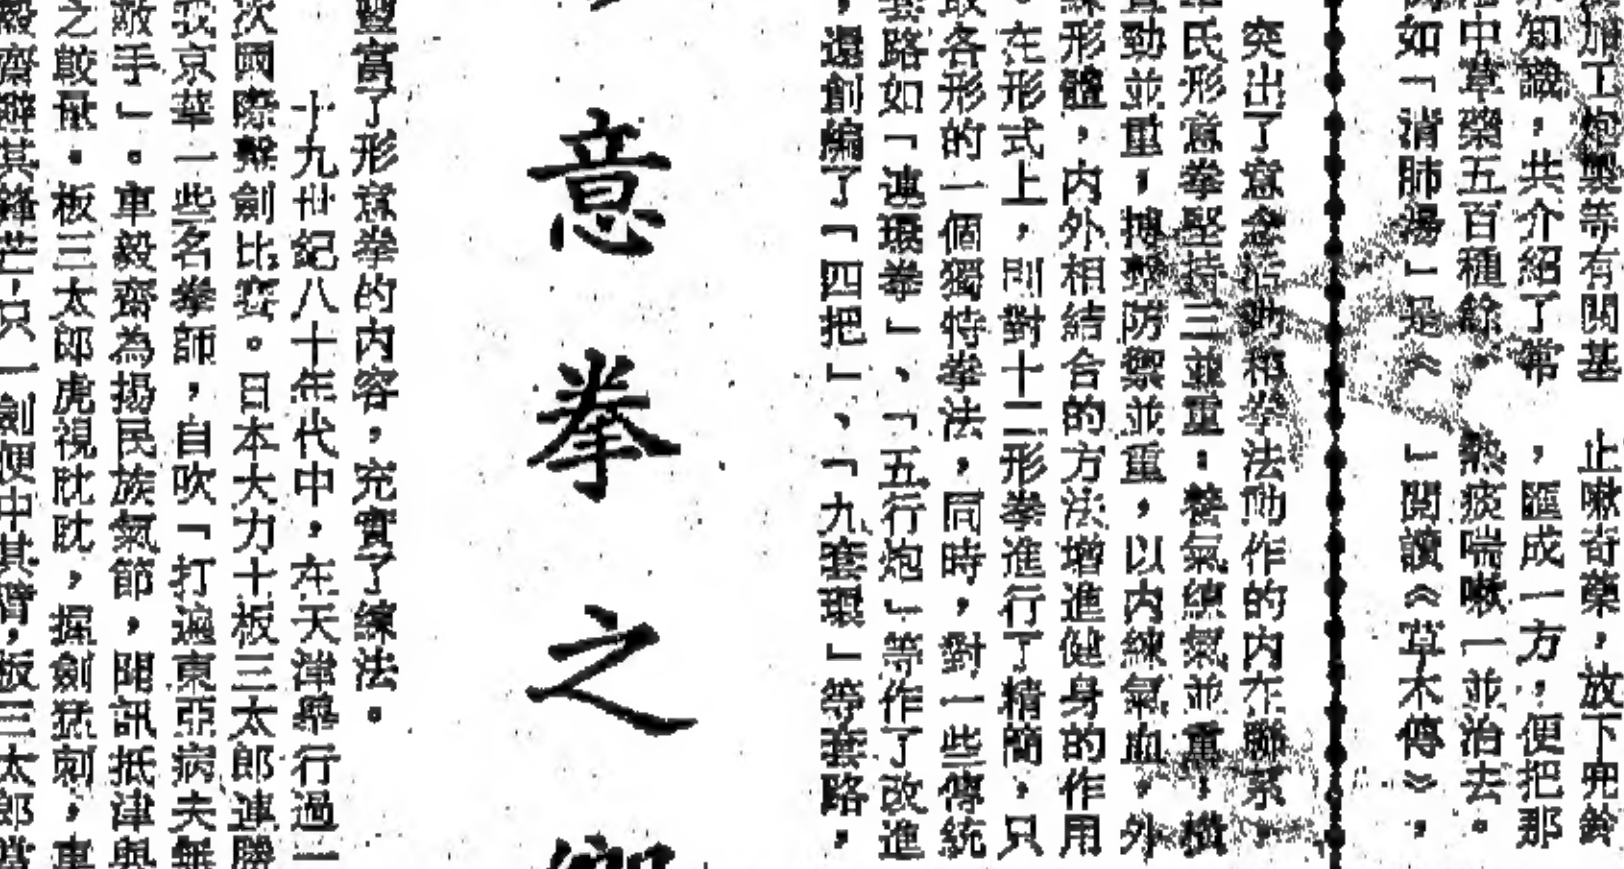 加工炮製等有關基
止嗽奇藥，放下
知識，共介紹了常
，匯成一方，便把那
中草藥五百種餘。
熱痰喘嗽一並治去。
如「消肺湯」是《
」閱讀《草木傳》，
突出了意念活動和拳法動作的內在聯系，
氏形意拳堅持三並重：養氣練氣並重，橫
勁並重，搏擊防禦並重，以內練氣血，外
形體，內外相結合的方法增進健身的作用
。在形式上，則對十二形拳進行了精簡，只
各形的一個獨特拳法，同時，對一些傳統
套路如「連環拳」、「五行炮」等作了改進
，還創編了「四把」、「九套環」等套路，
意拳之鄉
豐富了形意拳的內容，充實了練法。
十九世紀八十年代中，在天津舉行過一
次國際擊劍比賽。日本大力士板三太郎連勝
我京華一些名拳師，自吹「打遍東亞病夫無
敵手」。車毅齋為揚民族氣節，聞訊抵津與
之戰飛。板三太郎虎視眈眈，握劍猛刺，車
毅齋避其鋒芒，只一劍便中其臂，板三太郎當